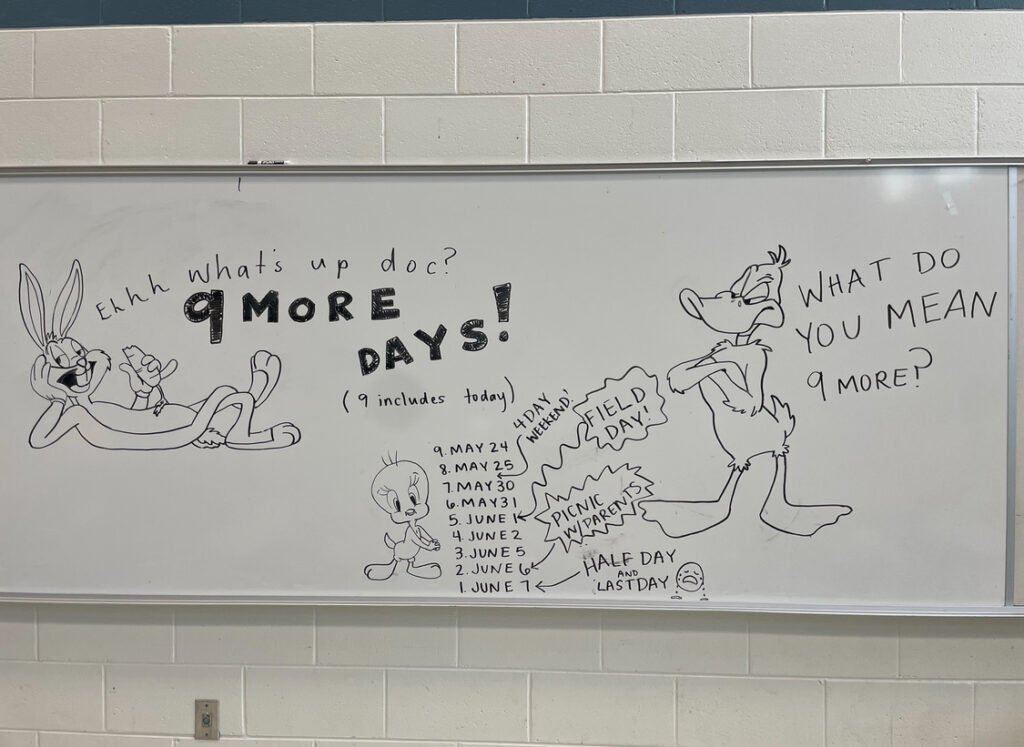 Ehhh what's up doc?
9 MORE
DAYS!
(9 includes today)
WHAT DO
YOU MEAN
9 MORE?
4 DAY
WEEKEND!
FIELD
DAY!
9. MAY 24
8. MAY 25
7. MAY 30
6. MAY 31
5. JUNE 1
4. JUNE 2
3. JUNE 5
2. JUNE 6
1. JUNE 7
PICNIC
W/PARENTS
HALF DAY
AND
LAST DAY